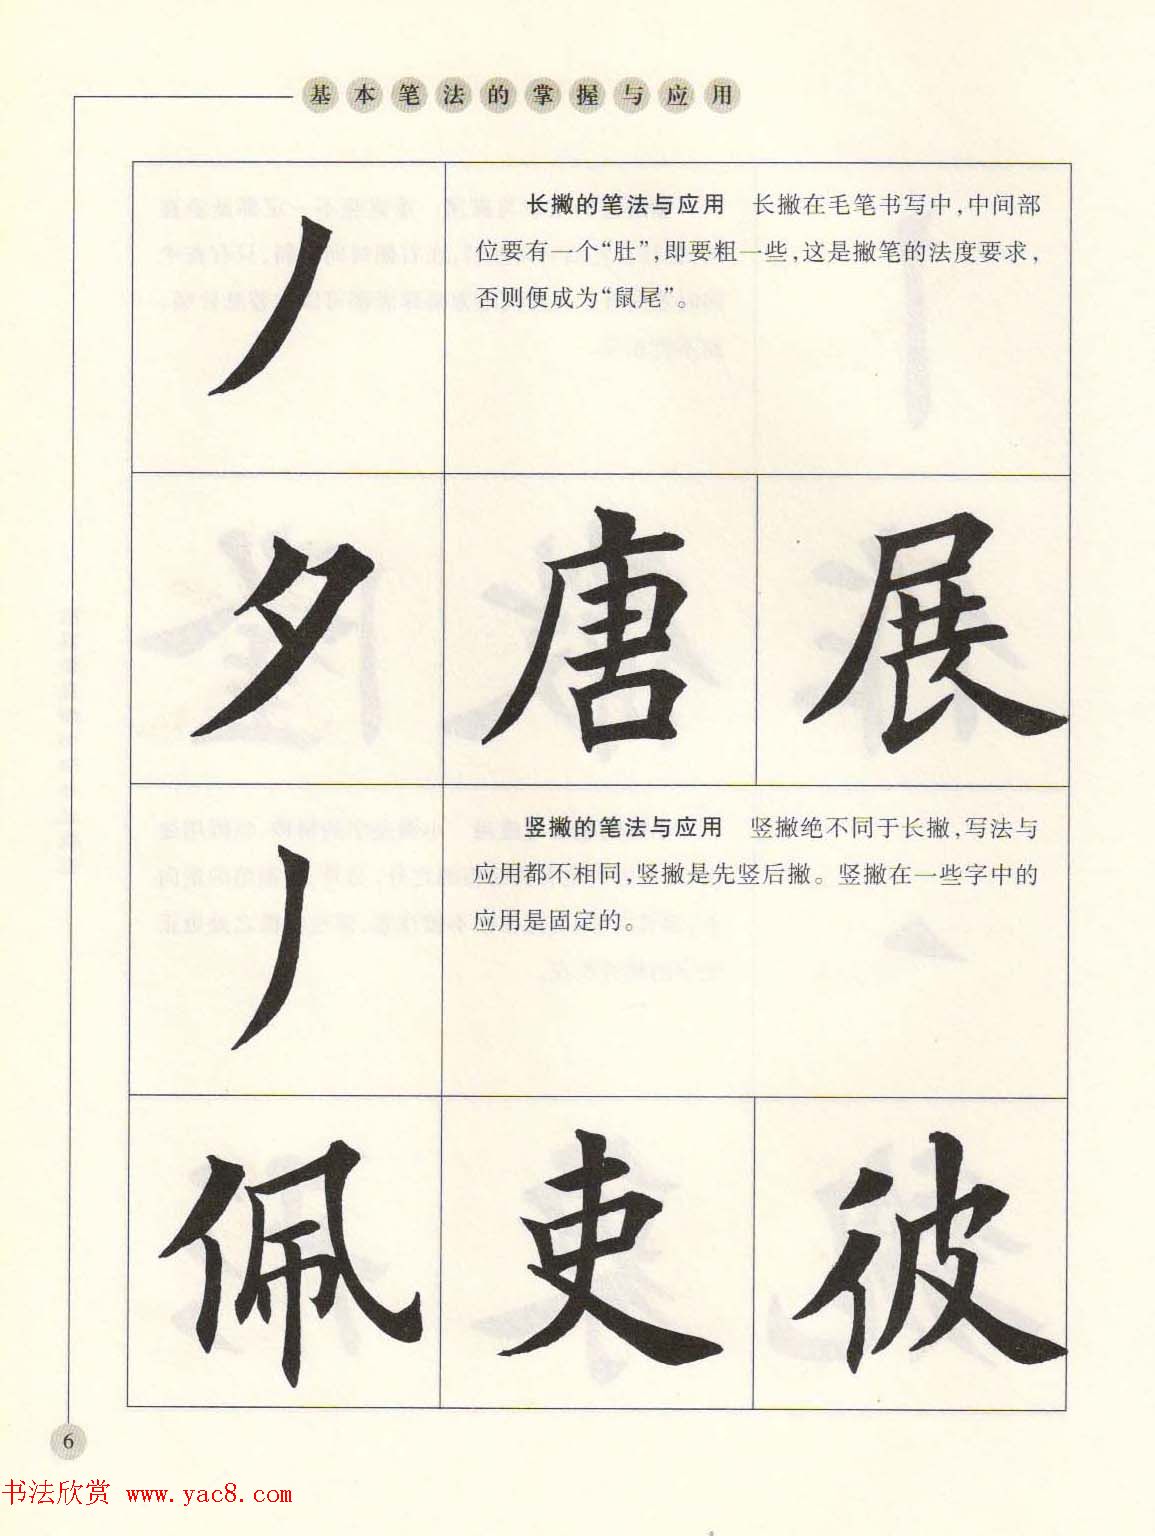 基本笔法的掌握与应用
长撇的笔法与应用　长撇在毛笔书写中，中间部
位要有一个“肚”，即要粗一些，这是撇笔的法度要求，
否则便成为“鼠尾”。
丿
夕 唐 展
竖撇的笔法与应用　竖撇绝不同于长撇，写法与
应用都不相同，竖撇是先竖后撇。竖撇在一些字中的
应用是固定的。
丿
佩 吏 彼
6
书法欣赏 www.yac8.com